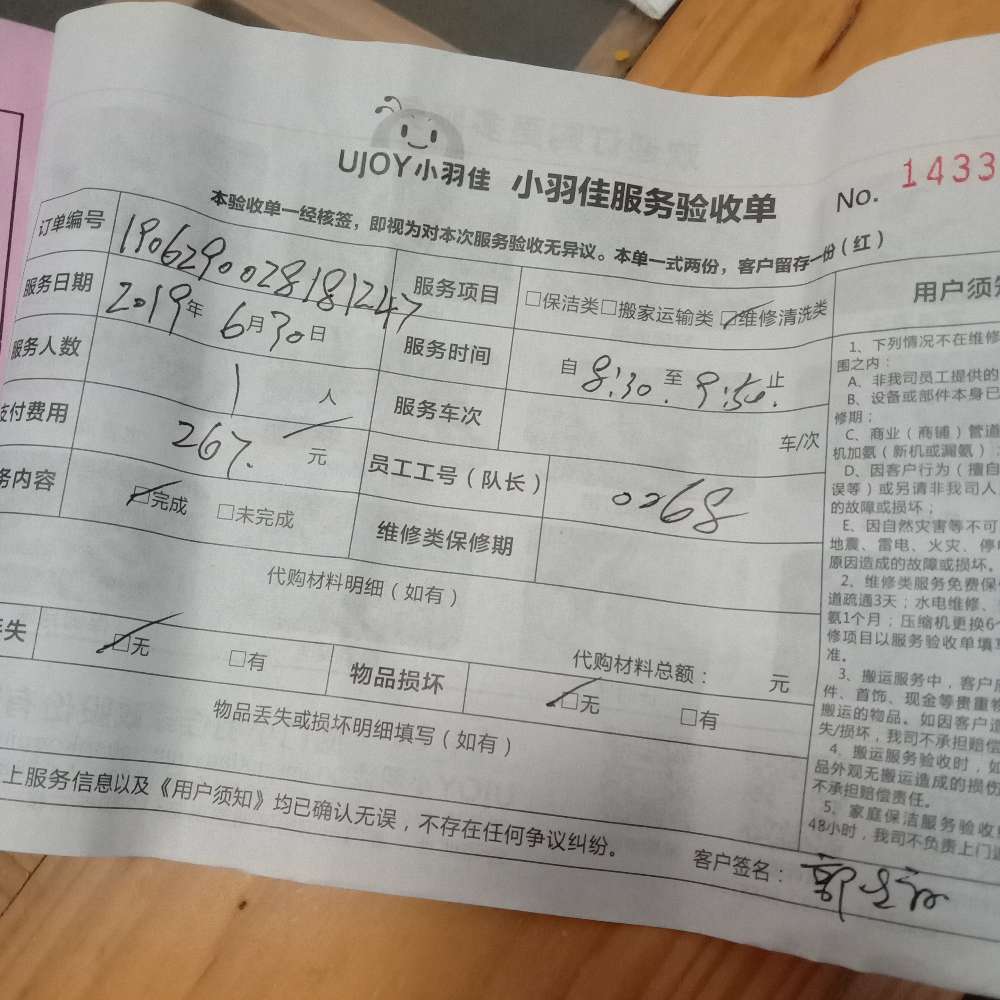 UJOY小羽佳 小羽佳服务验收单 No. 1433
本验收单一经核签，即视为对本次服务验收无异议。本单一式两份，客户留存一份（红）
订单编号 190629002818124​7 服务项目 □保洁类□搬家运输类☑维修清洗类
服务日期 2019年6月30日 服务时间 自8:30.至9:50.止
服务人数 1人 服务车次 车/次
支付费用 267.元 员工工号（队长） 0268
务内容 ☑完成 □未完成 维修类保修期
代购材料明细（如有）
代购材料总额： 元
丢失 ☑无 □有 物品损坏 ☑无 □有
物品丢失或损坏明细填写（如有）
上服务信息以及《用户须知》均已确认无误，不存在任何争议纠纷。
客户签名：
用户须知
1、下列情况不在维修
围之内：
A、非我司员工提供的
B、设备或部件本身已
修期；
C、商业（商铺）管道
机加氨（新机或漏氨）；
D、因客户行为（擅自
误等）或另请非我司人
的故障或损坏；
E、因自然灾害等不可
地震、雷电、火灾、停
原因造成的故障或损坏。
2、维修类服务免费保
道疏通3天；水电维修、
氨1个月；压缩机更换6个
修项目以服务验收单填写
准。
3、搬运服务中，客户
件、首饰、现金等贵重物
搬运的物品。如因客户
失/损坏，我司不承担赔偿
4、搬运服务验收时，如
品外观无搬运造成的损伤
不承担赔偿责任。
5、家庭保洁服务验收
48小时，我司不负责上门